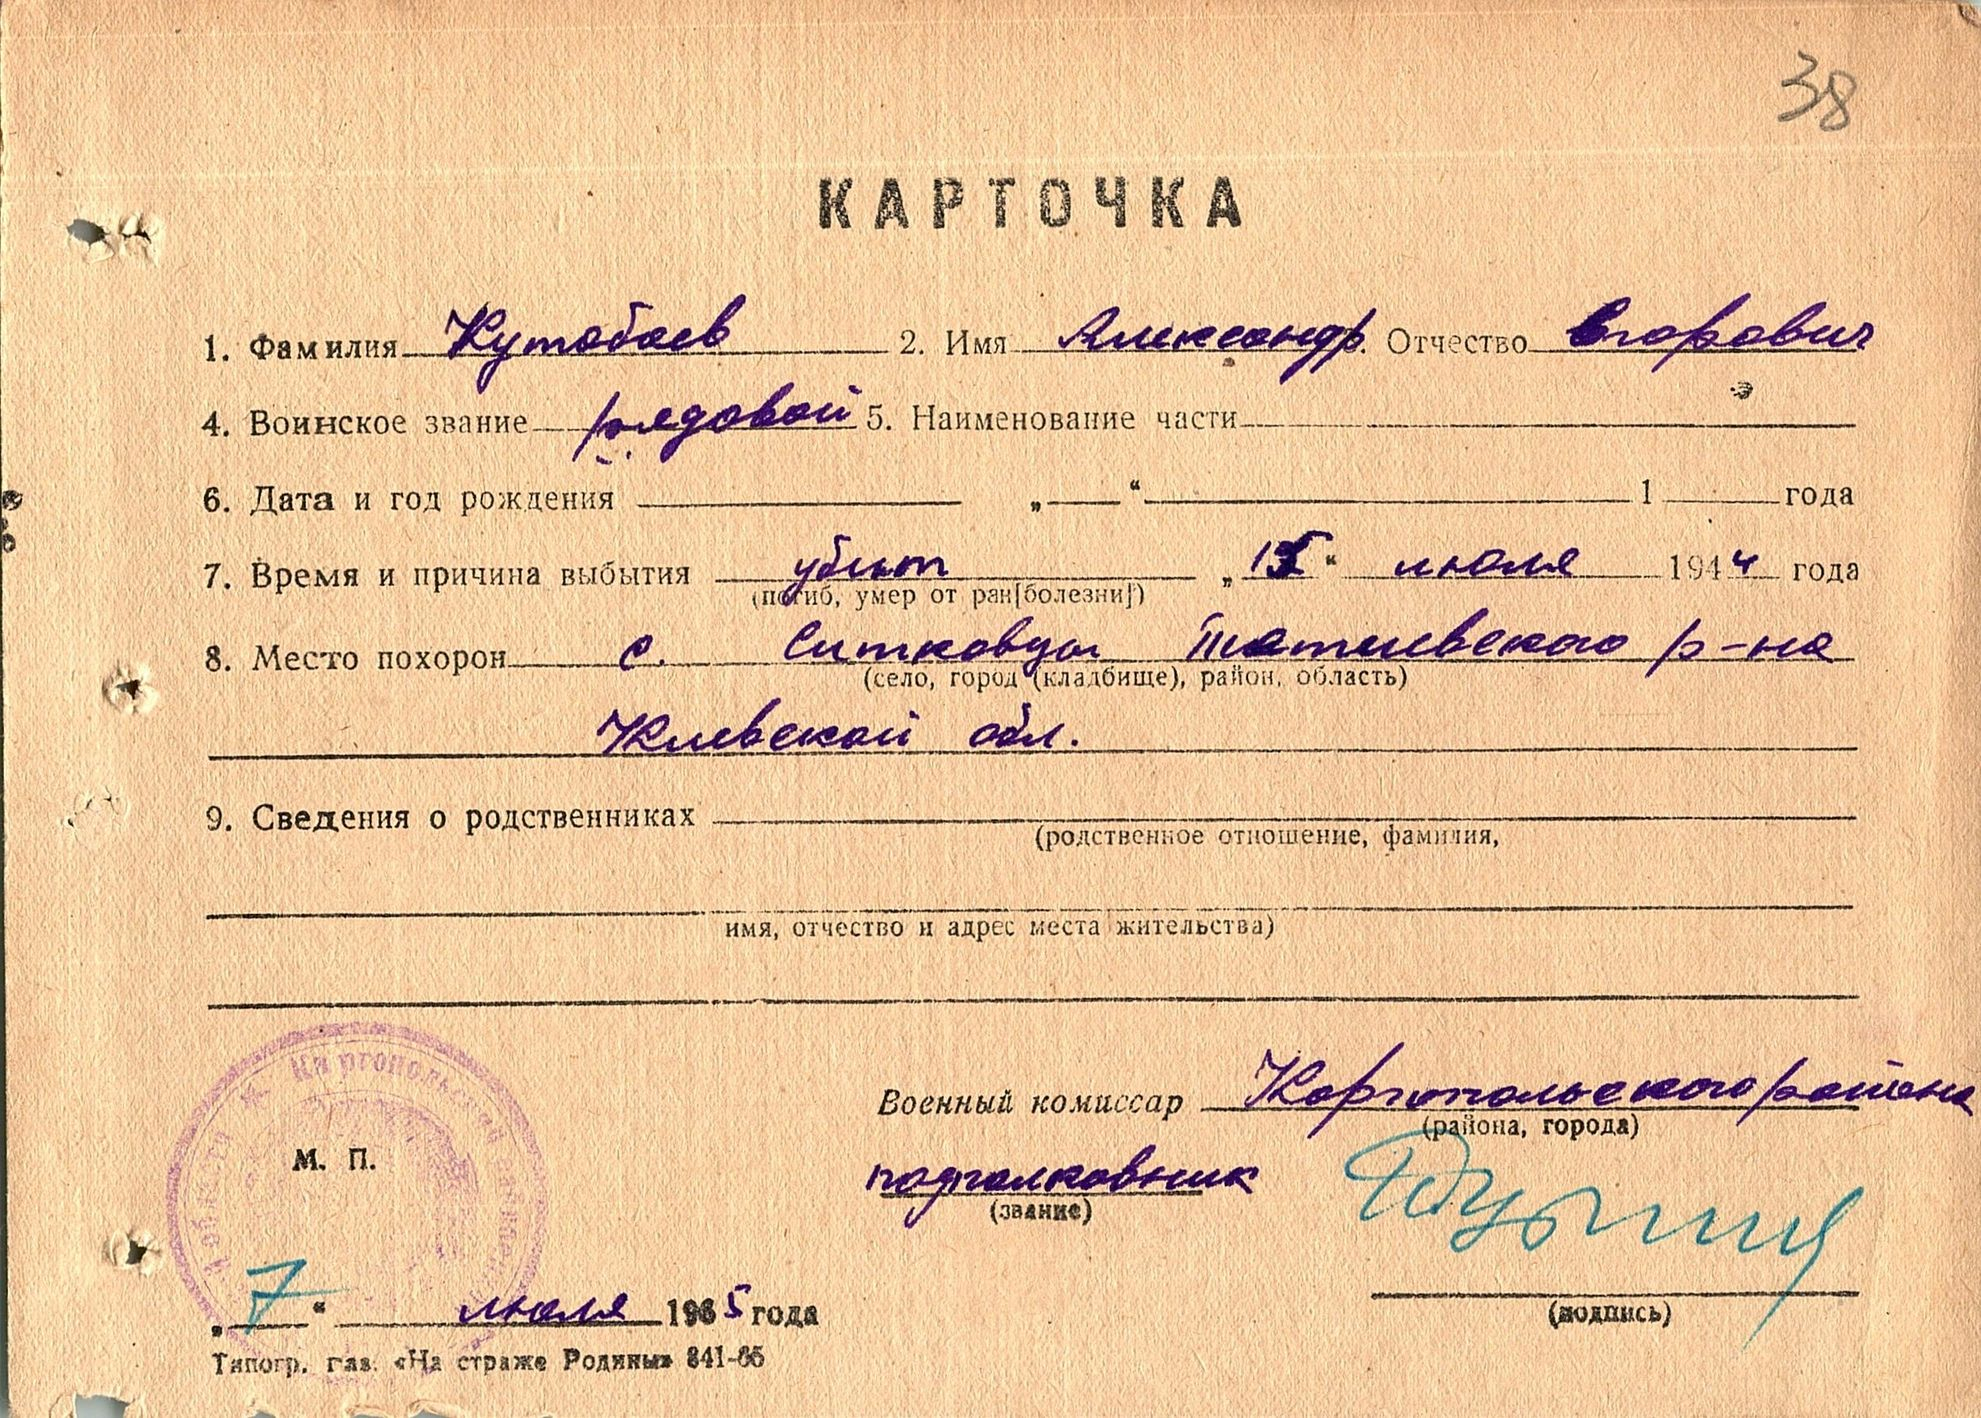 38
КАРТОЧКА
1. Фамилия Кутабаев 2. Имя Александр. Отчество Егорович
4. Воинское звание рядовой 5. Наименование части
6. Дата и год рождения „ “ 1 года
7. Время и причина выбытия убит „15“ июля 1944 года
(погиб, умер от ран[болезни])
8. Место похорон с. Ситковцы Татиевского р-на
(село, город (кладбище), район, область)
Киевской обл.
9. Сведения о родственниках
(родственное отношение, фамилия,
имя, отчество и адрес места жительства)
Военный комиссар Каргопольского района
(района, города)
М. П.
подполковник
(звание)
(подпись)
„7“ июля 1965 года
Типогр. газ. «На страже Родины» 841-65
Каргопольский
области